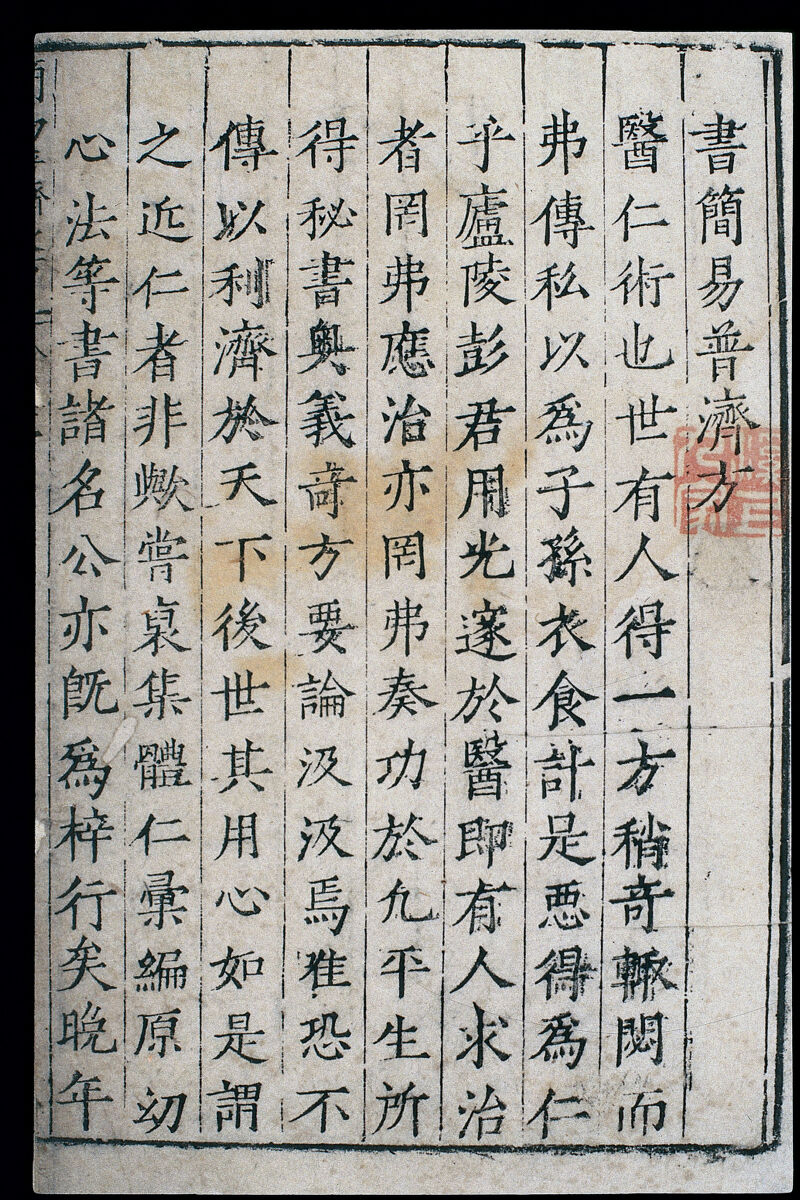 書簡易普濟方
醫仁術也世有人得一方稍奇輙閟而
弗傳私以爲子孫衣食計是惡得爲仁
乎廬陵彭君用光邃於醫即有人求治
者罔弗應治亦罔弗奏功於凢平生所
得秘書奥義奇方要論汲汲焉惟恐不
傳以利濟於天下後世其用心如是謂
之近仁者非歟嘗裒集體仁彙編原幼
心法等書諸名公亦旣爲梓行矣晚年